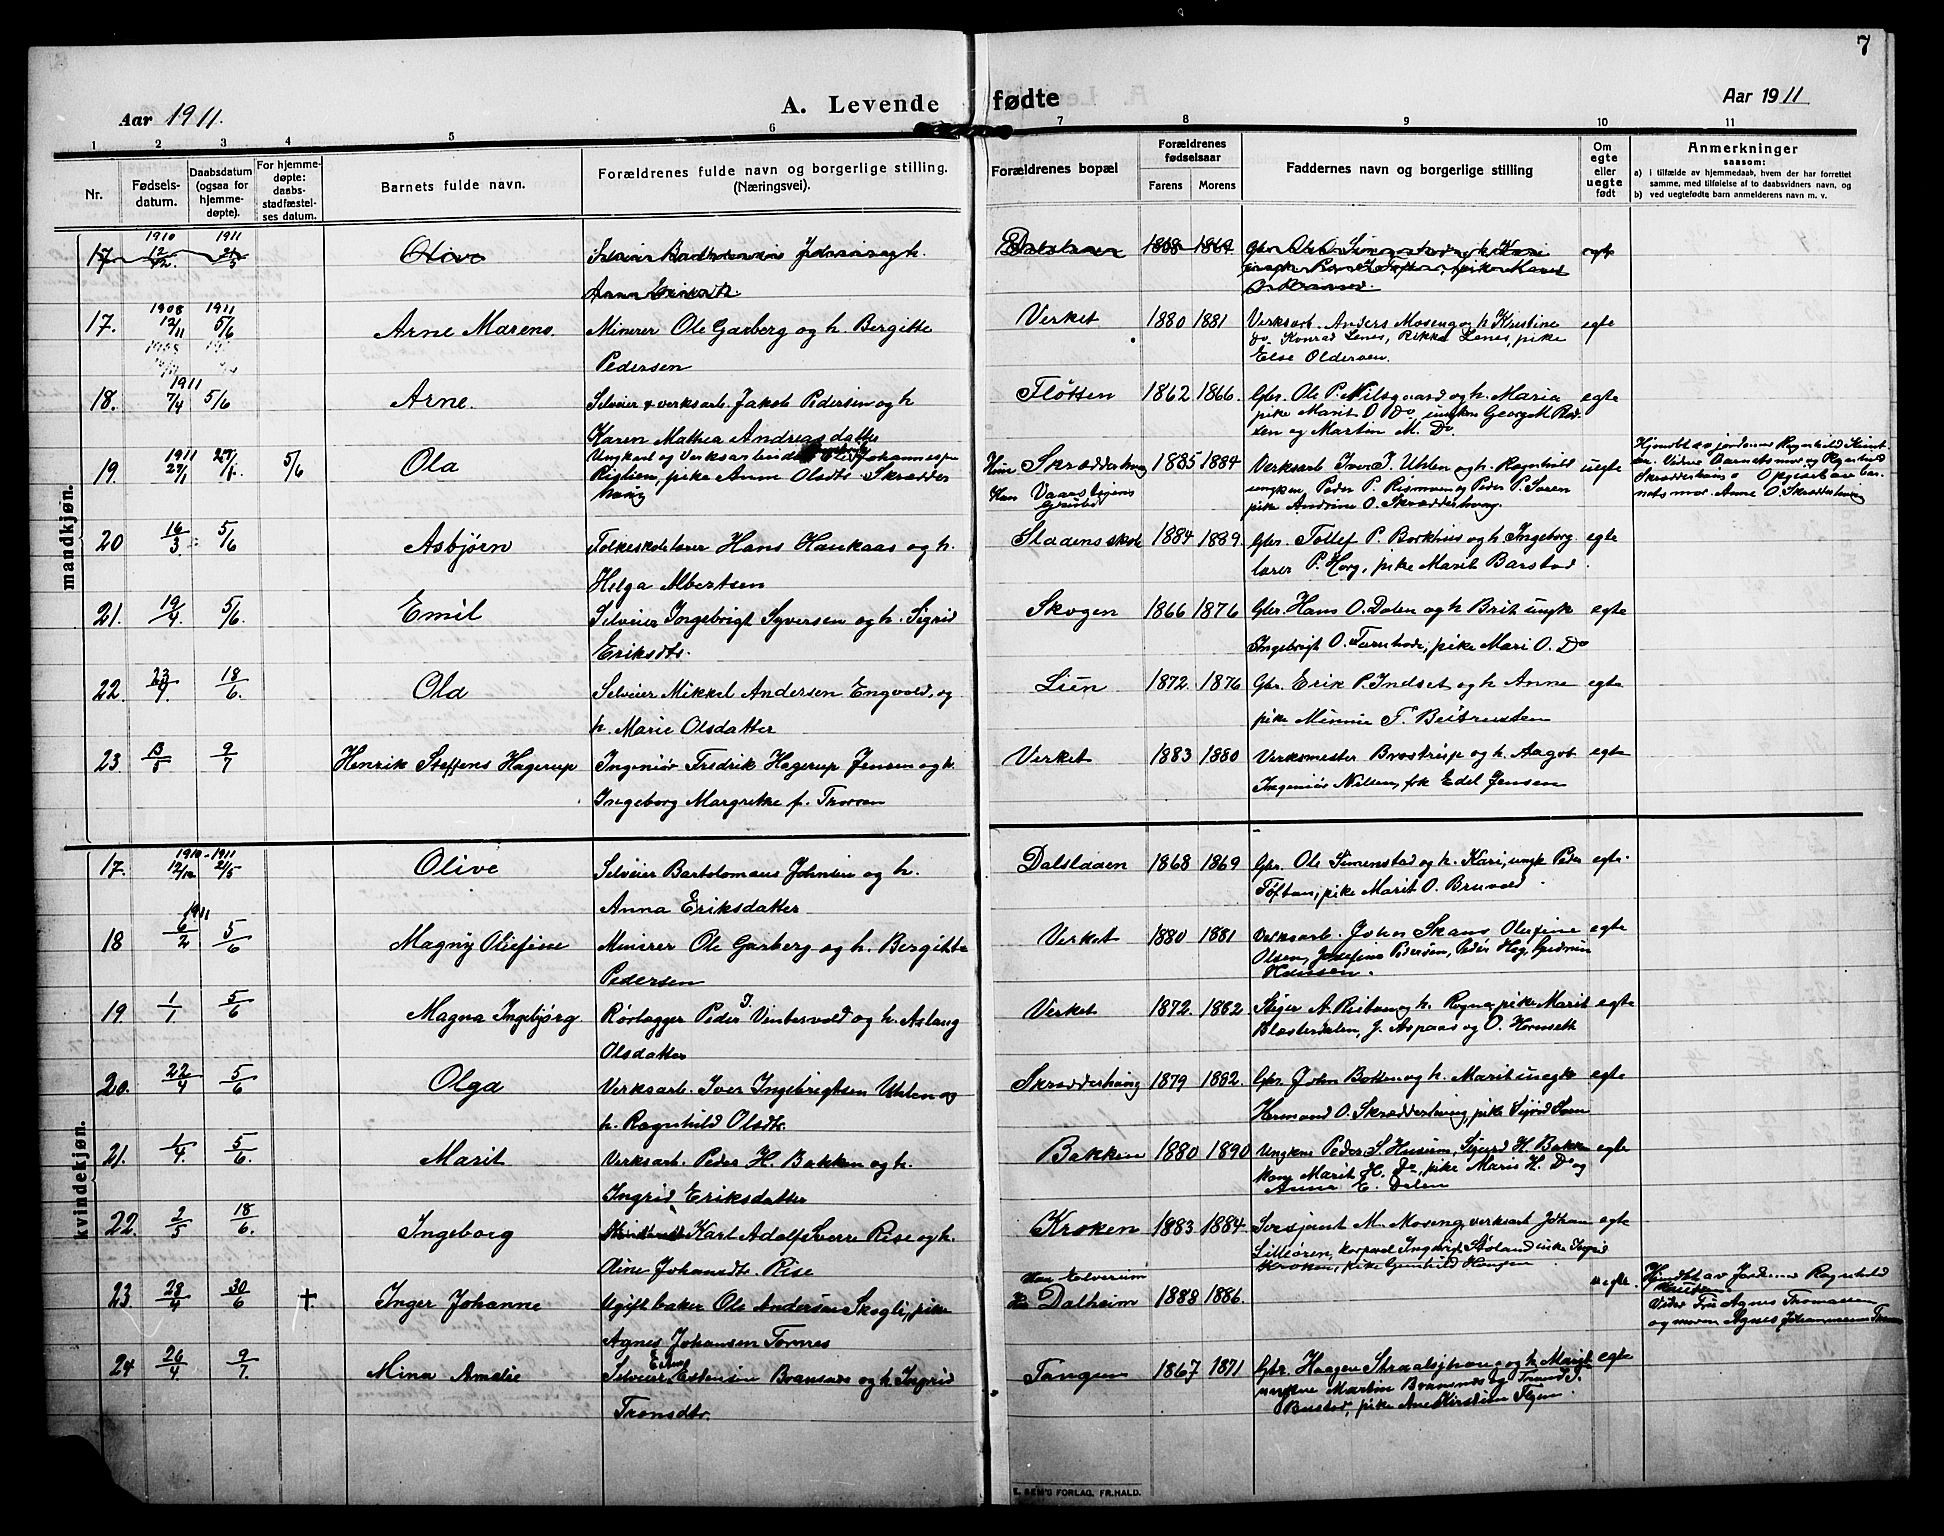 7
Aar 1911.
A. Levende fødte
Aar 1911
1 2 3 4 5 6 7 8 9 10 11
Nr.
Fødsels-
datum.
Daabsdatum
(ogsaa for
hjemme-
døpte).
For hjemme-
døpte:
daabs-
stadfæstel-
ses datum.
Barnets fulde navn.
Forældrenes fulde navn og borgerlige stilling.
(Næringsvei).
Forældrenes bopæl
Forældrenes
fødselsaar
Farens
Morens
Faddernes navn og borgerlige stilling
Om
egte
eller
uegte
født
Anmerkninger
saasom:
a) i tilfælde av hjemmedaab, hvem der har forrettet
samme, med tilføielse af to daabsvidners navn, og
b) ved uegtefødte barn anmelderens navn m. v.
mandkjøn.
1910 1911
17 12/12 21/5 Olive Selveier Johnsen og h. Dalslaaen 1868 1869 egte
Anna Eriksdtr.
1908 1911
17. 12/11 5/6 Arne Marens Minerer Ole Garberg og h. Bergitte Verket 1880 1881 Verksarb. Anders Moseng og h. Kristine egte
Do Konrad Lenes, Rikka Lenes, pike
Pedersen Else Olderøen.
1911
18. 7/4 5/6 Arne. Selveier & verksarb. Jakob Pedersen og h Fløtten 1862 1866 Gbr. Ole P. Nilsgaard og h. Maria egte
pike Marit O Do, ungkar Georg M.
Karen Mathea Andreasdatter og Martin M. Do.
1911
19. 27/1 27/1 5/6 Ola Ungkarl og Verksarbeider Johannesen Hun Skrædderhaug 1885 1884 Verksarb. Iver I. Uhlen og h. Ragnhild uegte
pike Anne Olsdtr Skrædder Han Vaarstigens ungkar Peder P. og Peder P.
haug Grube pike Andrine O. Skrædderhaug.
Hjemdbt av jordemor Ragnhild
Vidner Barnets mor og Ragnhild
Skrædderhaug. Opgiver av bar-
nets mor. Anne O. Skrædderhaug
20 16/3 5/6 Asbjørn Folkeskolelærer Hans Haukaas og h. Stadens skole 1884 1889. Gbr. Tollef P. Borkhus og h. Ingeborg egte
Helga Albertsen lærer P. Horg, pike Marit Barstad.
21. 19/4 5/6. Emil Selveier Ingebrigt Syversen og h. Sigrid Skogen 1866 1876 Gbr. Hans O. Dalen og h Brit ungk egte
Eriksdtr. Ingebrigt O. pike Mari O. Do
22. 23/4 18/6 Ola Selveier Mikkel Andersen Engvold, og Lien 1872 1876 Gbr. Erik P. Indset og h Anne egte
h. Marie Olsdatter pike Minnie T.
23 13/5 9/7 Henrik Steffens Hagerup Ingeniør Fredrik Hagerup Jensen og h Verket 1883 1880 Verksmester Brostrup og h. Aagot egte
Ingeborg Margrethe f. Thorsen Ingeniør Nilsen, frk Edel Jensen
kvindekjøn.
1910 - 1911
17. 12/12 21/5 Olive Selveier Bartolomæus Johnsen og h. Dalslaaen 1868 1869 Gbr. Ole Simenstad og h. Kari, ungk Peder egte.
Anna Eriksdatter Toftan, pike Marit O. Bruvold.
1911
18 6/2 5/6 Magny Oliefine Minerer Ole Garberg og h. Bergitte Verket 1880 1881 Verksarb. Johan Skans Olefine egte
Pedersen Olsen, Josefine Pedersen, Peder Hog, Gudrun
Hansen.
19 1/1 5/6 Magna Ingebjørg Rørlægger Peder I. Vintervold og h. Aslaug Verket 1872. 1882 Steger A. Reitan og h. Ragna, pike Marit egte
Olsdatter Blæsterdalen, J. Aspaas og O. Hornseth
20. 22/4 5/6 Olga Verksarb. Iver Ingebrigtsen Uhlen og Skrædderhaug 1879 1882. Gbr. John Bakken og h. Marit ungk egte
h. Ragnhild Olsdtr Hermand O. Skrædderhaug, pike
21. 1/4 5/6. Marit Verksarb. Peder H. Bakken og h. Bakken 1880 1890 Ungkar Peder S. Sigurd H. Bakken egte
Ingrid Eriksdatter Marit H. Do, pike Maris H. Do og
Anna E. Dalen
22. 2/5 18/6. Ingeborg Karl Adolf Sverre Rise og h. Kroken 1883 1884. Sersjant M. Moseng, verksarb Johan egte
Oline Johansdtr. Rise Lilleøren, korporal Ingebrigt pike Ingrid
Kroken, pike Gunhild Haugen
23. 28/4 30/6 † Inger Johanne Ugift baker Ole Andersen Skogli, pike Han Elverum
Hun Dalheim 1888 1886. uegte.
Agnes Johansen Tornes
Hjemdbt av Jordemor Ragnhild
Vidner Fru Agnes Thomassen
og moren Agnes Johannesen
24 26/4 9/7. Mina Amalie Selveier Estensen Bransnes og h. Ingrid Tangen 1867 1871 Gbr. Haagen og h. Margit egte
Tronsdtr. Martin Bransnes og Trond J.
pike Ane Kirstine
E. SEM'S FORLAG, FR.HALD.